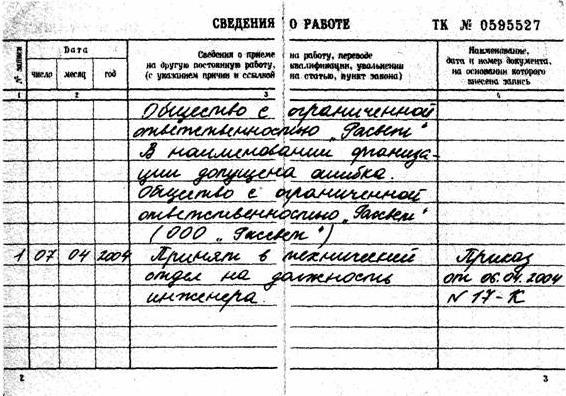 СВЕДЕНИЯ О РАБОТЕ ТК № 0595527
№ записи
Дата
число месяц год
Сведения о приеме на работу, переводе
на другую постоянную работу, квалификации, увольнении
(с указанием причин и ссылкой на статью, пункт закона)
Наименование,
дата и номер документа,
на основании которого
внесена запись
1 2 3 4
Общество с ограниченной
ответственностью „Расвет“
В наименовании организа-
ции допущена ошибка.
Общество с ограниченной
ответственностью „Рассвет“
(ООО „Рассвет“)
1 07 04 2004 Принят в технический Приказ
отдел на должность от 06.04.2004
инженера N 17-К
2 3